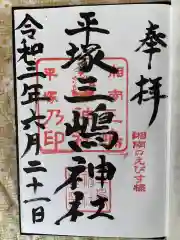 奉拝
湘南のえびす様
平塚三嶋神社
平塚乃印
令和二年六月二十一日